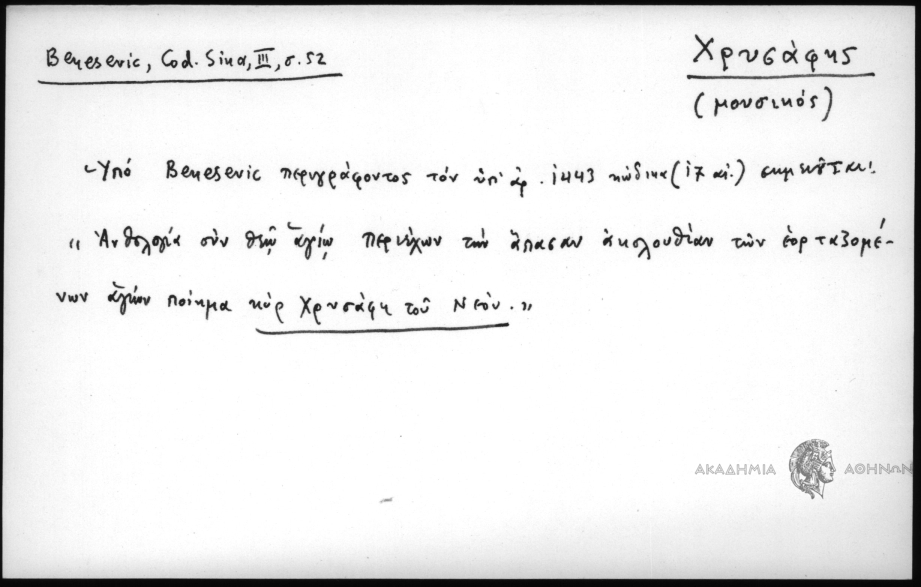 Benesevic, Cod. Sina, III, σ. 52
Χρυσάφης
(μουσικός)
Ὑπό Benesevic περιγράφοντος τόν ὑπ' ἀρ. 1443 κώδικα (17 αἰ.) σημειοῦται:
"Ἀνθολογία σὺν θεῷ ἁγίῳ περιέχων τὴν ἅπασαν ἀκολουθίαν τῶν ἑορταζομέ-
νων ἁγίων ποίημα κὺρ Χρυσάφη τοῦ Νέου."
ΑΚΑΔΗΜΙΑ ΑΘΗΝΩΝ